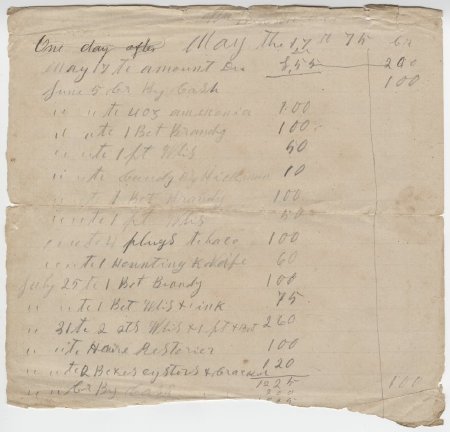 One day after May the 17 st 75 Cr
May 17 to amount Du 8,55 200
June 5 Cr By Cash 100
" " " to 4 oz ammonia 100
" " " te 1 Bot Brandy 100
" " " te 1 pt Whis 50
" " " te Candy By Hickman 10
" " " te 1 Bot Brandy 100
" " " te 1 pt Whis 50
" " " te 4 plugs tobaco 100
" " " te 1 Haunting Knife 60
July 25 te 1 Bot Brandy 100
" " te 1 Bet Whis & ink 75
" 31 te 2 qts Whis & 1 pt & Bot 260
" " te Haire Restorier 100
" " te 2 Boxes oysters & Cracker 120
" " Cr By Cash 1225 100